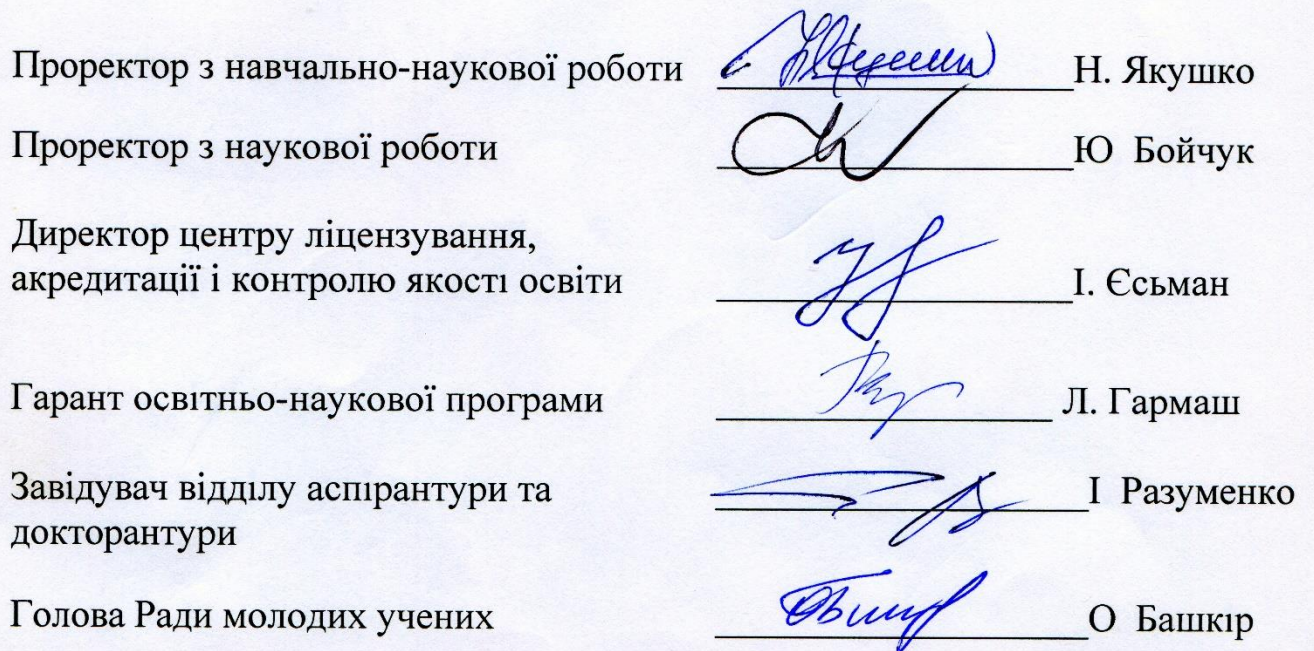 Проректор з навчально-наукової роботи Н. Якушко
Проректор з наукової роботи Ю Бойчук
Директор центру ліцензування,
акредитації і контролю якості освіти І. Єсьман
Гарант освітньо-наукової програми Л. Гармаш
Завідувач відділу аспірантури та І Разуменко
докторантури
Голова Ради молодих учених О Башкір